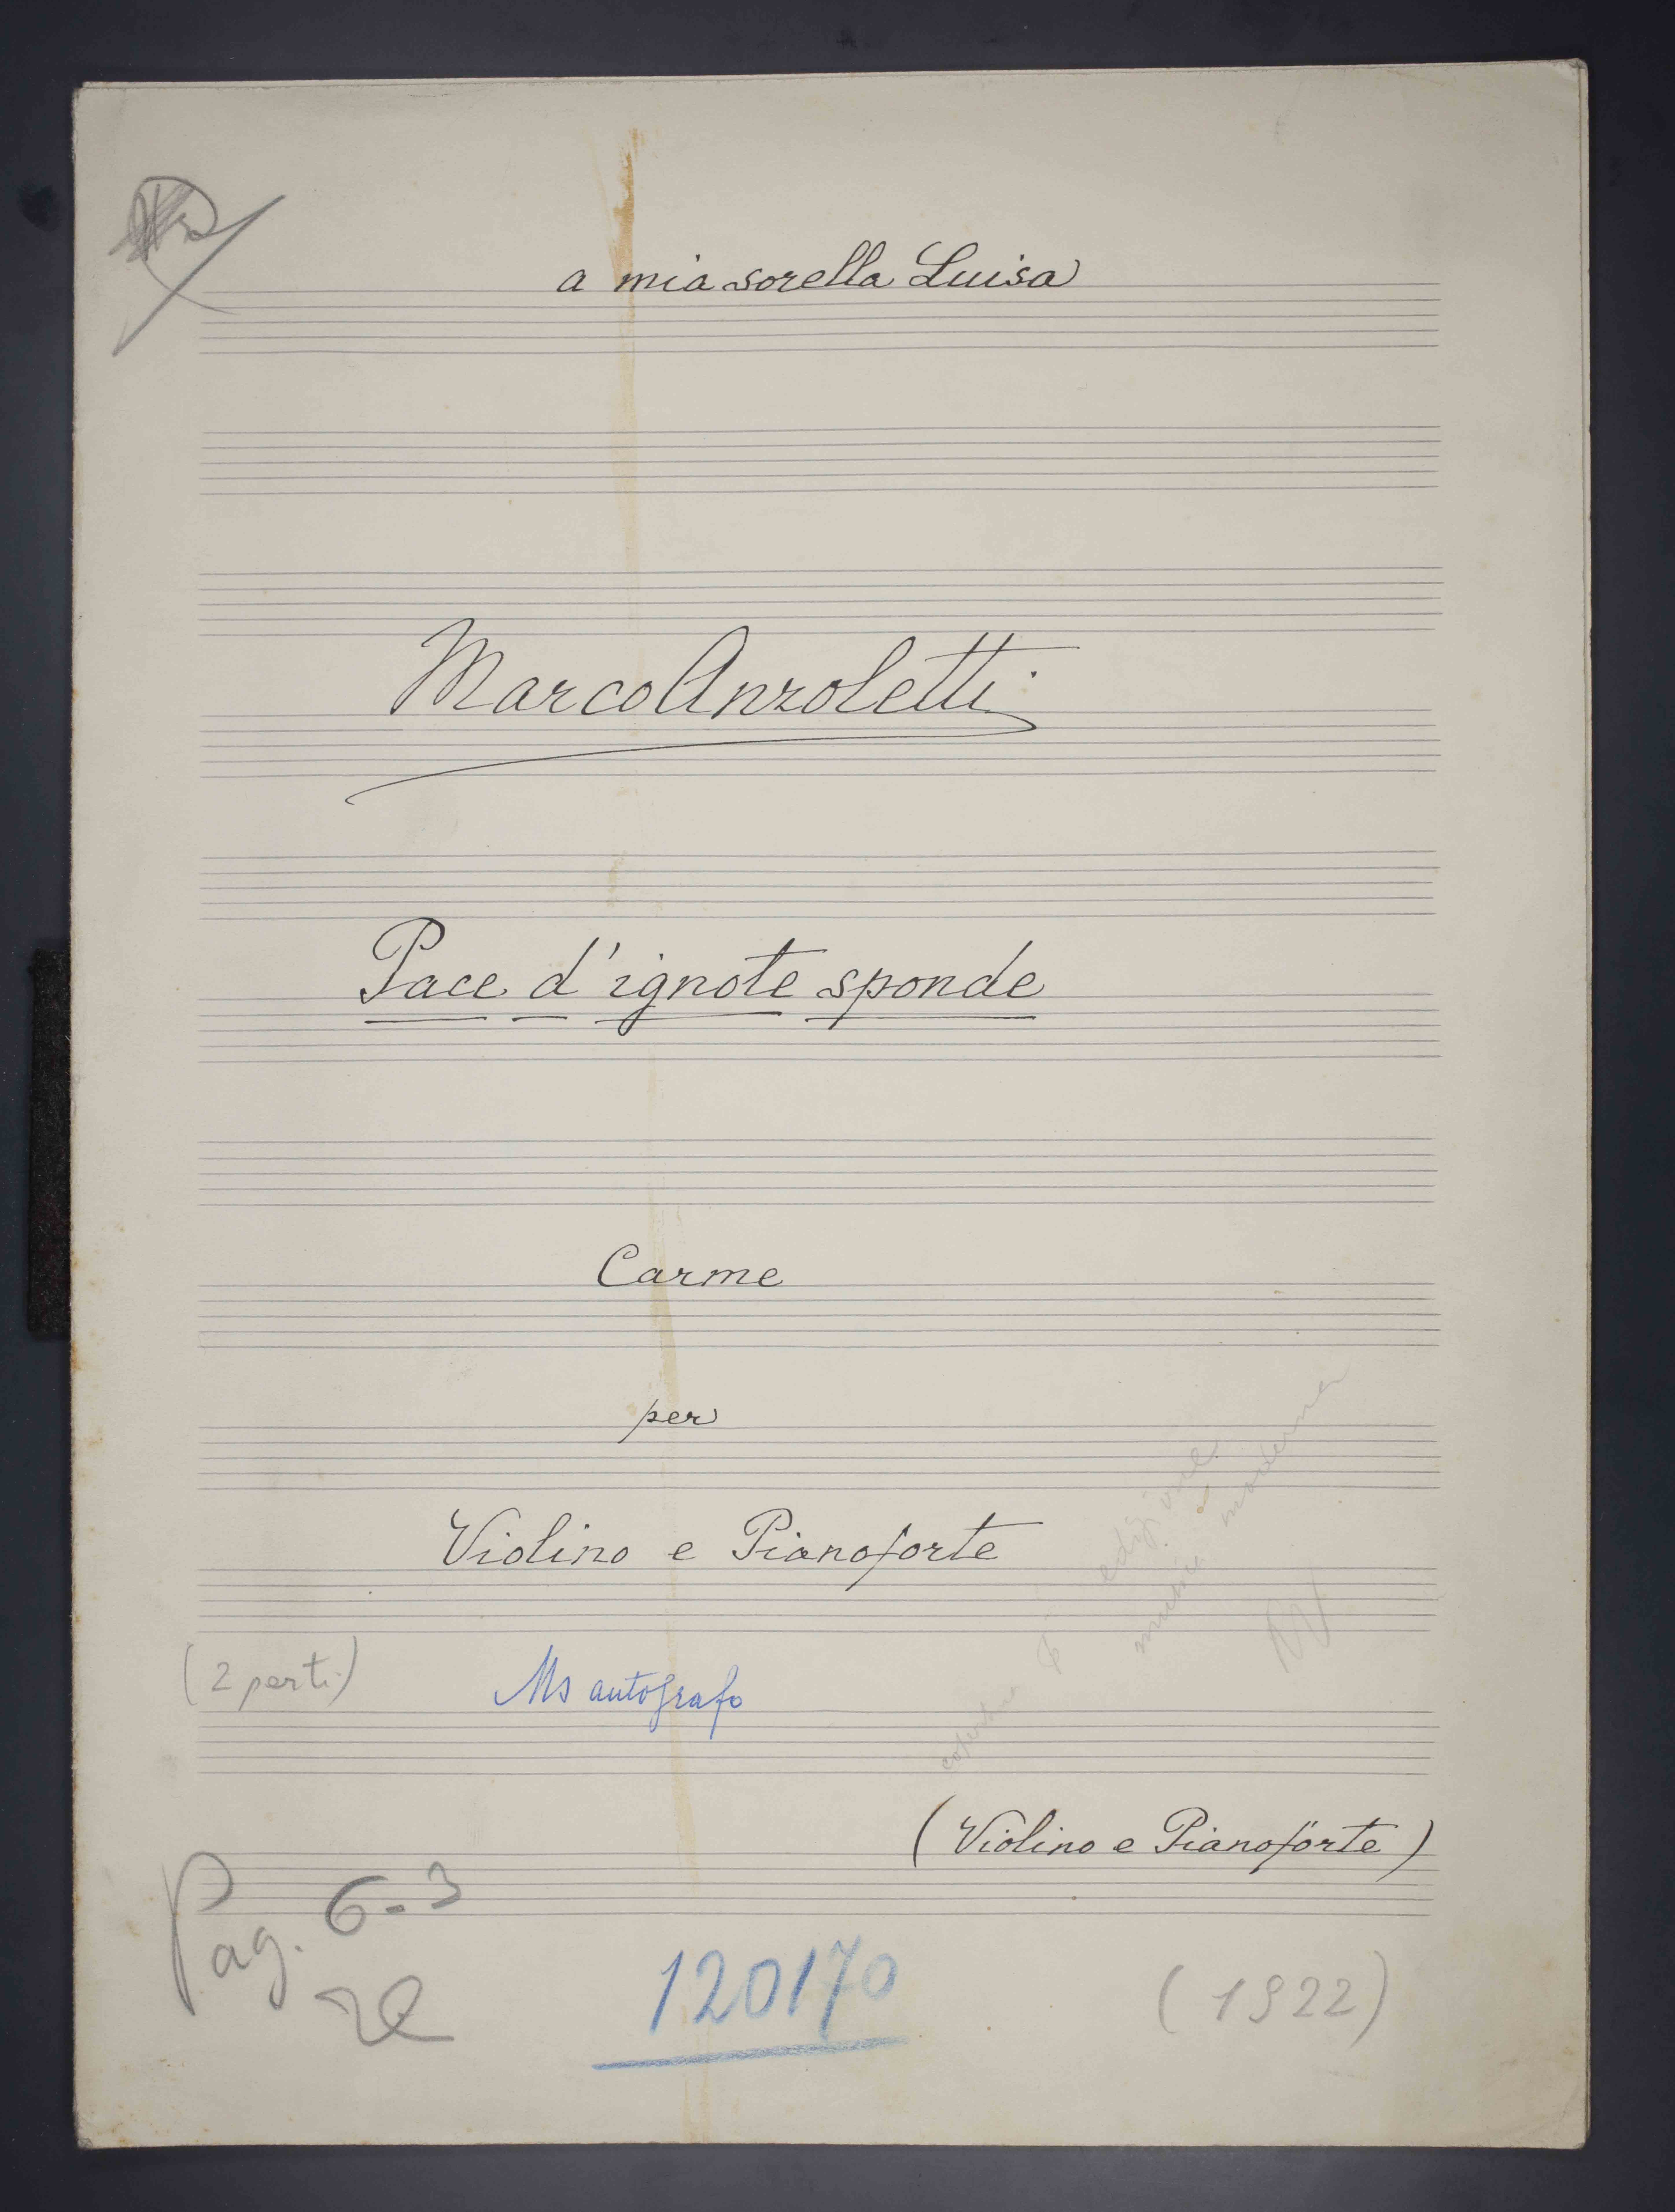 a mia sorella Luisa
Marco Anzoletti
Pace d'ignote sponde
Carme
per
Violino e Pianoforte
edizione
musica moderna
(2 parti)
Ms autografo
copertina
(Violino e Pianoforte)
Pag. 6-3
120170
(1922)